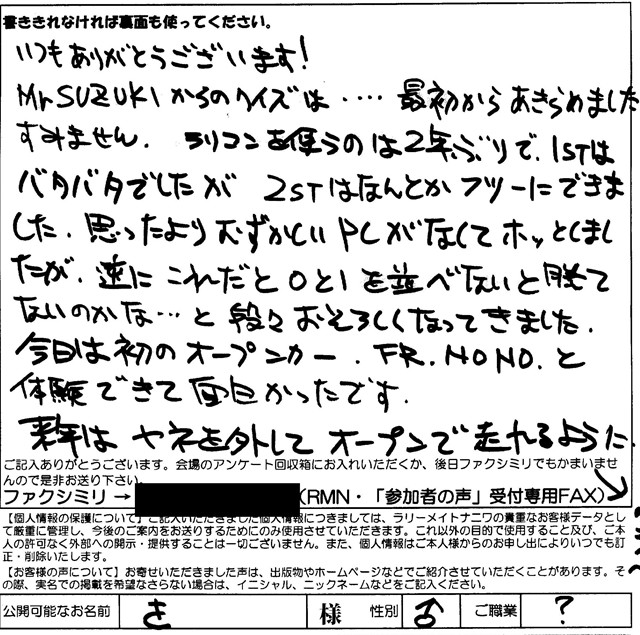 書ききれなければ裏面も使ってください。
いつもありがとうございます!
Mr SUZUKIからのクイズは‥‥最初からあきらめました
すみません. ラリコンを使うのは2年ぶりで. 1STは
バタバタでしたが 2STはなんとかフツーにできま
した. 思ったよりむずかしいPCがなくてホッとしまし
たが. 逆にこれだと0と1を並べないと勝て
ないのかな…と段々おそろしくなってきました.
今日は初のオープンカー. FR. NONO. と
体験できて面白かったです.
来年はヤネを外してオープンで走れるように.
ご記入ありがとうございます。会場のアンケート回収箱にお入れいただくか、後日ファクシミリでもかまいませ
んので是非お送り下さい。
ファクシミリ→ (RMN・「参加者の声」受付専用FAX)
【個人情報の保護について】ご記入いただきました個人情報につきましては、ラリーメイトナニワの貴重なお客様データとし
て厳重に管理し、今後のご案内をお送りするためにのみ使用させていただきます。これ以外の目的で使用すること及び、ご本
人の許可なく外部への開示・提供することは一切ございません。また、個人情報はご本人様からのお申し出によりいつでも訂
正・削除いたします。
【お客様の声について】お寄せいただきました声は、出版物やホームページなどでご紹介させていただくことがあります。そ
の際、実名での掲載を希望なさらない場合は、イニシャル、ニックネームなどをご記入ください。
公開可能なお名前 き 様 性別 ♂ ご職業 ?